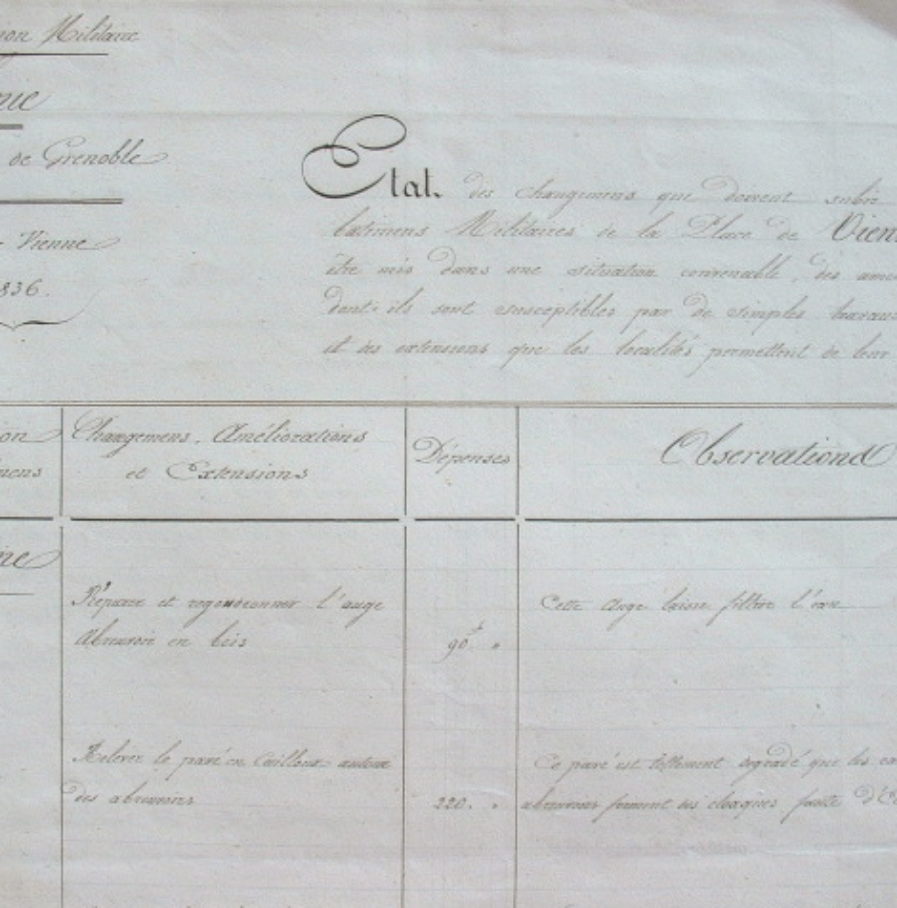 on Militaire
nie
de Grenoble
Vienne
836.
Etat des changemens que doivent subir
batimens Militaires de la Place de Vien
être mis dans une situation convenable, des amé
dont ils sont susceptibles par de simples travaux
et des extensions que les localités permettent de leur
on
mens
Changemens, Améliorations
et Extensions
Dépenses
Observations
ne
Réparer et regoudronner l'auge
Abreuvoir en bois
90.f "
Cette Auge laisse filtrer l'eau
Relever le pavé en Cailloux autour
des abreuvoirs
220. "
Ce pavé est tellement dégradé que les ea
abreuvoirs forment des cloaques faute d'E